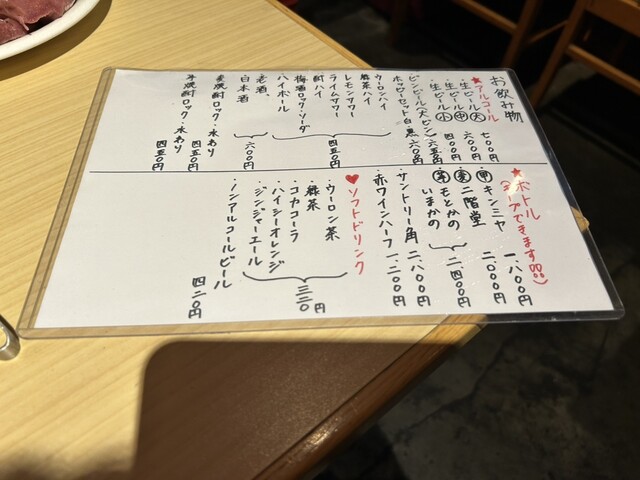 お飲み物
★アルコール
・生ビール(大) 七〇〇円
・生ビール(中) 六〇〇円
・生ビール(小) 四〇〇円
・ビンビール(大ビン) 六五〇円
・ホッピーセット白・黒 六〇〇円
・ウーロンハイ
・緑茶ハイ
・レモンサワー
・ライムサワー
・酎ハイ
・梅酒ロック・ソーダ
・ハイボール
四五〇円
・老酒
・日本酒
六〇〇円
・麦焼酎ロック・水わり 四五〇円
・芋焼酎ロック・水わり 四五〇円
★ボトル
(キープできます!!)
・(甲)キンミヤ 一、八〇〇円
・(麦)二階堂 二〇〇〇円
・(麦)もとかの
・(芋)いまかの
二、四〇〇円
・サントリー角 二、八〇〇円
・赤ワインハーフ 一、二〇〇円
♥ソフトドリンク
・ウーロン茶
・緑茶
・コカコーラ
・ハイシーオレンジ
・ジンジャーエール
三二〇円
・ノンアルコールビール 四二〇円